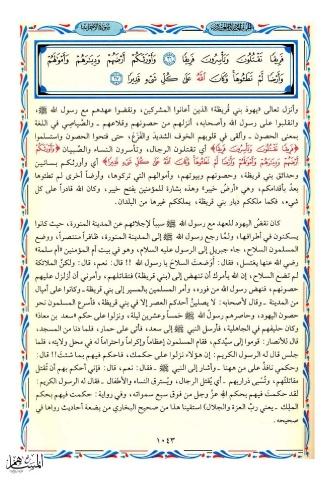 فَرِيقًا تَقْتُلُونَ وَتَأْسِرُونَ فَرِيقًا ﴿٢٦﴾ وَأَوْرَثَكُمْ أَرْضَهُمْ وَدِيَارَهُمْ وَأَمْوَالَهُمْ
وَأَرْضًا لَّمْ تَطَئُوهَا وَكَانَ اللَّهُ عَلَىٰ كُلِّ شَيْءٍ قَدِيرًا ﴿٢٧﴾
وأنزل تعالى اليهود بني قريظة الذين أعانوا المشركين، ونقضوا عهدهم مع رسول الله ﷺ،
وانقلبوا على رسول الله وأصحابه، أنزلهم من حصونهم وقلاعهم ـ والصياصي في اللغة
بمعنى الحصون ـ وألقى في قلوبهم الخوف الشديد والفزع، حتى فتحوا الحصون واستسلموا
﴿فَرِيقًا تَقْتُلُونَ وَتَأْسِرُونَ فَرِيقًا﴾ أي تقتلون الرجال، وتأسرون النساء والصبيان ﴿وَأَوْرَثَكُمْ
أَرْضَهُمْ وَدِيَارَهُمْ وَأَمْوَالَهُمْ وَأَرْضًا لَّمْ تَطَئُوهَا وَكَانَ اللَّهُ عَلَىٰ كُلِّ شَيْءٍ قَدِيرًا﴾ أي وأورثكم بساتين
وحدائق بني قريظة، وحصونهم وبيوتهم، وأموالهم التي تركوها، وأرضاً أخرى لم تطئوها
بعد بأقدامكم، وهي «أرض خيبر» وهذه بشارة للمؤمنين بفتح خيبر، وكان الله قادراً على كل
شيء، فكما ملككم ديار بني قريظة، يملككم غيرها من البلدان.
كان نقض اليهود للعهد مع رسول الله ﷺ سبباً لإجلائهم عن المدينة المنورة، حيث كانوا
يسكنون في أطرافها، ولما رجع رسول الله ﷺ إلى المدينة المنورة، ظافراً منتصراً، ووضع
المسلمون السلاح، جاء جبريل إلى الرسول عليه السلام، وهو في بيت أم المؤمنين «أم سلمة»
رضي الله عنها يغتسل، فقال: أوضعت السلاح يا رسول الله !! قال: نعم، قال: ولكن الملائكة
لم تضع السلاح، إن الله يأمرك أن تنهض إلى (بني قريظة) فتقاتلهم، وأمرني أن أزلزل عليهم
حصونهم، فنهض رسول الله من فوره، وأمر المسلمين بالمسير إلى بني قريظة ـ وكانوا على أميال
من المدينة ـ وقال لأصحابه: لا يصلين أحدكم العصر إلا في بني قريظة، فأسرع المسلمون نحو
حصون اليهود، وحاصرهم رسول الله ﷺ خمساً وعشرين ليلة، ونزلوا على حكم «سعد بن معاذ»
وكان حليفهم في الجاهلية، فأرسل النبي ﷺ إلى سعد، فأتى على حمار، فلما دنا من المسجد
قال للأنصار: قوموا إلى سيدكم، فقام المسلمون إعظاماً وإكراماً واحتراماً له في محل ولايته، فلما
جلس قال له الرسول الكريم: إن هؤلاء نزلوا على حكمك، فاحكم فيهم بما شئت!! قال:
وحكمي نافذ على من ههنا ـ وأشار إلى النبي ﷺ ـ فقال: نعم، قال: فإني أحكم بهم أن تقتل
مقاتلتهم، وتسبى ذراريهم ـ أي يقتل الرجال، ويسترق النساء والأطفال ـ فقال له الرسول الكريم:
لقد حكمت فيهم بحكم الله عز وجل من فوق سبع سمواته، وفي رواية: حكمت فيهم بحكم
الملك ـ يعني رب العزة والجلال) استقينا هذا من صحيح البخاري من بضعة أحاديث رواها في
صحيحه.
١٠٤٣